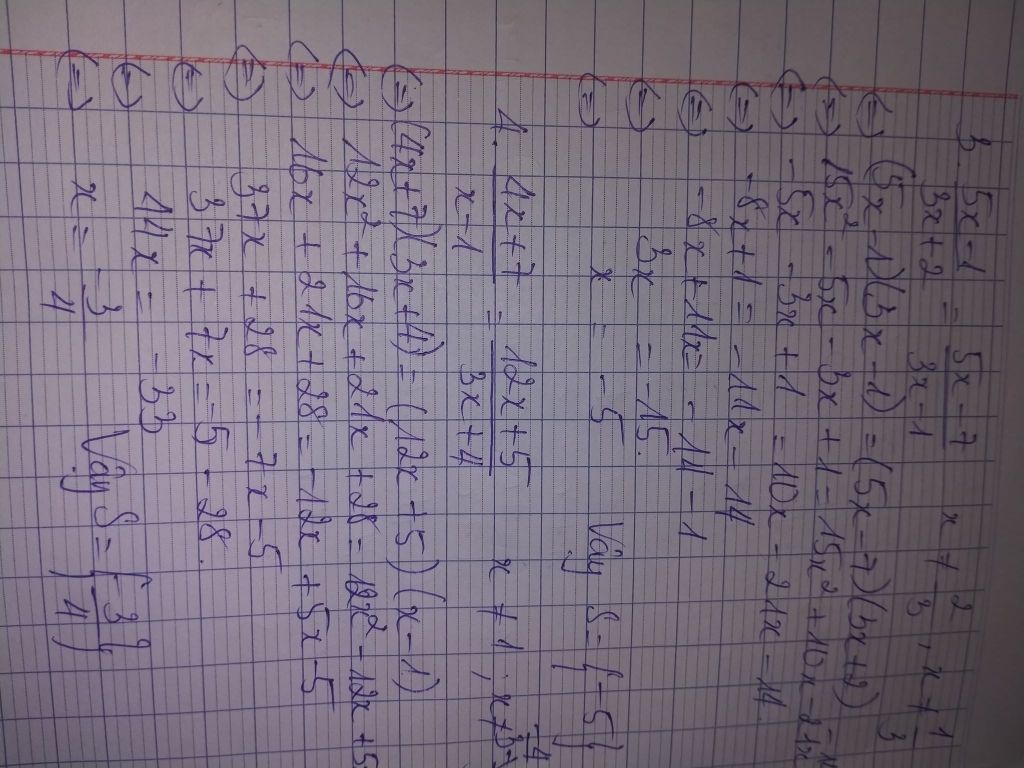 3. (5x-1)/(3x+2) = (5x-7)/(3x-1) x ≠ 2/3, x ≠ 1/3
(=) (5x-1)(3x-1) = (5x-7)(3x+2)
(=) 15x² - 5x - 3x + 1 = 15x² + 10x - 21x - 14
(=) -5x - 3x + 1 = 10x - 21x - 14
(=) -8x + 1 = -11x - 14
(=) -8x + 11x = -14 - 1
(=) 3x = -15
(=) x = -5 Vậy S = {-5}
4. (4x+7)/(x-1) = (12x+5)/(3x+4) x ≠ 1; x ≠ -4/3
(=) (4x+7)(3x+4) = (12x+5)(x-1)
(=) 12x² + 16x + 21x + 28 = 12x² - 12x + 5x
(=) 16x + 21x + 28 = -12x + 5x - 5
(=) 37x + 28 = -7x - 5
(=) 37x + 7x = -5 - 28.
(=) 44x = -33
(=) x = -3/4 Vậy S = {-3/4}